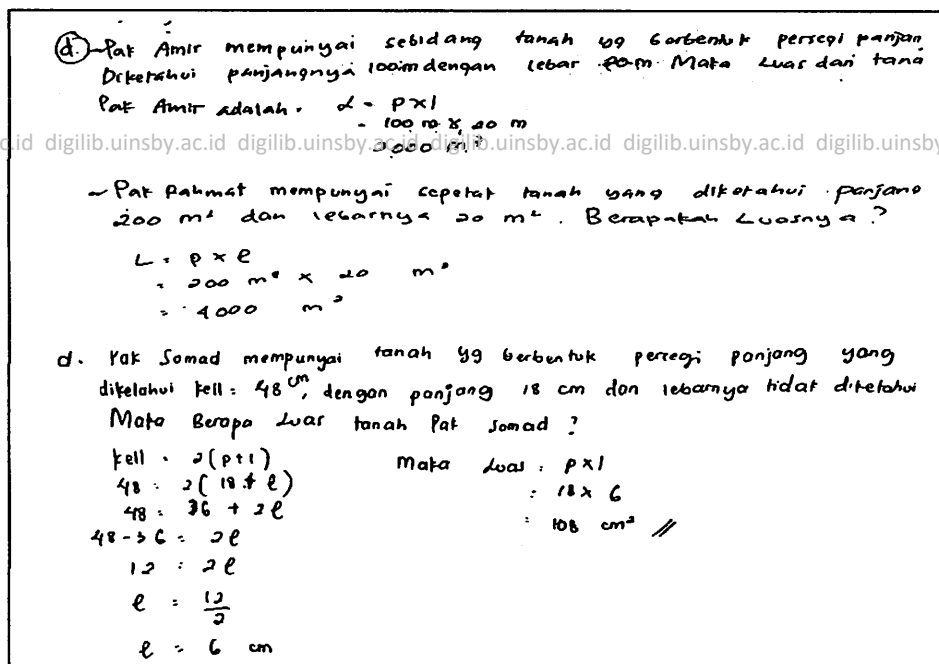 d. - Pak Amir mempunyai sebidang tanah yg berbentuk persegi panjan
Diketahui panjangnya 100 m dengan lebar 20 m. Maka Luas dari tana
Pak Amir adalah. L = p x l
= 100 m x 20 m
2000 m²
c.id digilib.uinsby.ac.id digilib.uinsby.ac.id digilib.uinsby.ac.id digilib.uinsby.ac.id digilib.uinsby
~ Pak Rahmat mempunyai sepetak tanah yang diketahui panjang
200 m² dan lebarnya 20 m². Berapakah Luasnya?
L = p x l
= 200 m² x 20 m²
= 4000 m²
d. Pak Somad mempunyai tanah yg berbentuk persegi panjang yang
diketahui kell = 48 cm, dengan panjang 18 cm dan lebarnya tidak diketahui
Maka Berapa Luas tanah Pak Somad?
kell = 2(p+l) Maka Luas = p x l
48 = 2(18 + l) = 18 x 6
48 = 36 + 2l = 108 cm² //
48 - 36 = 2l
12 = 2l
l = 12/2
l = 6 cm